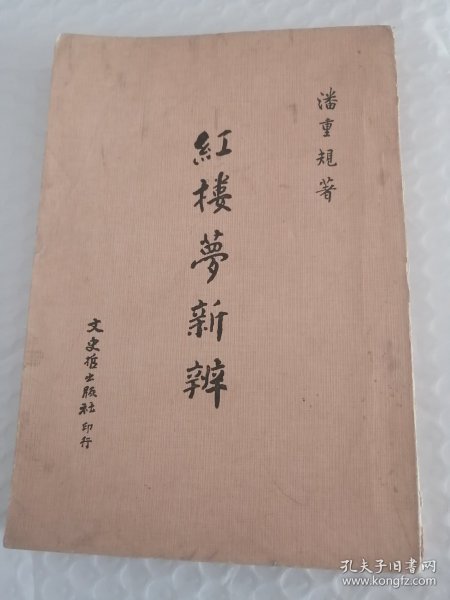 潘重規著
紅樓夢新辨
文史哲出版社印行
孔夫子旧书网
www.kongfz.com